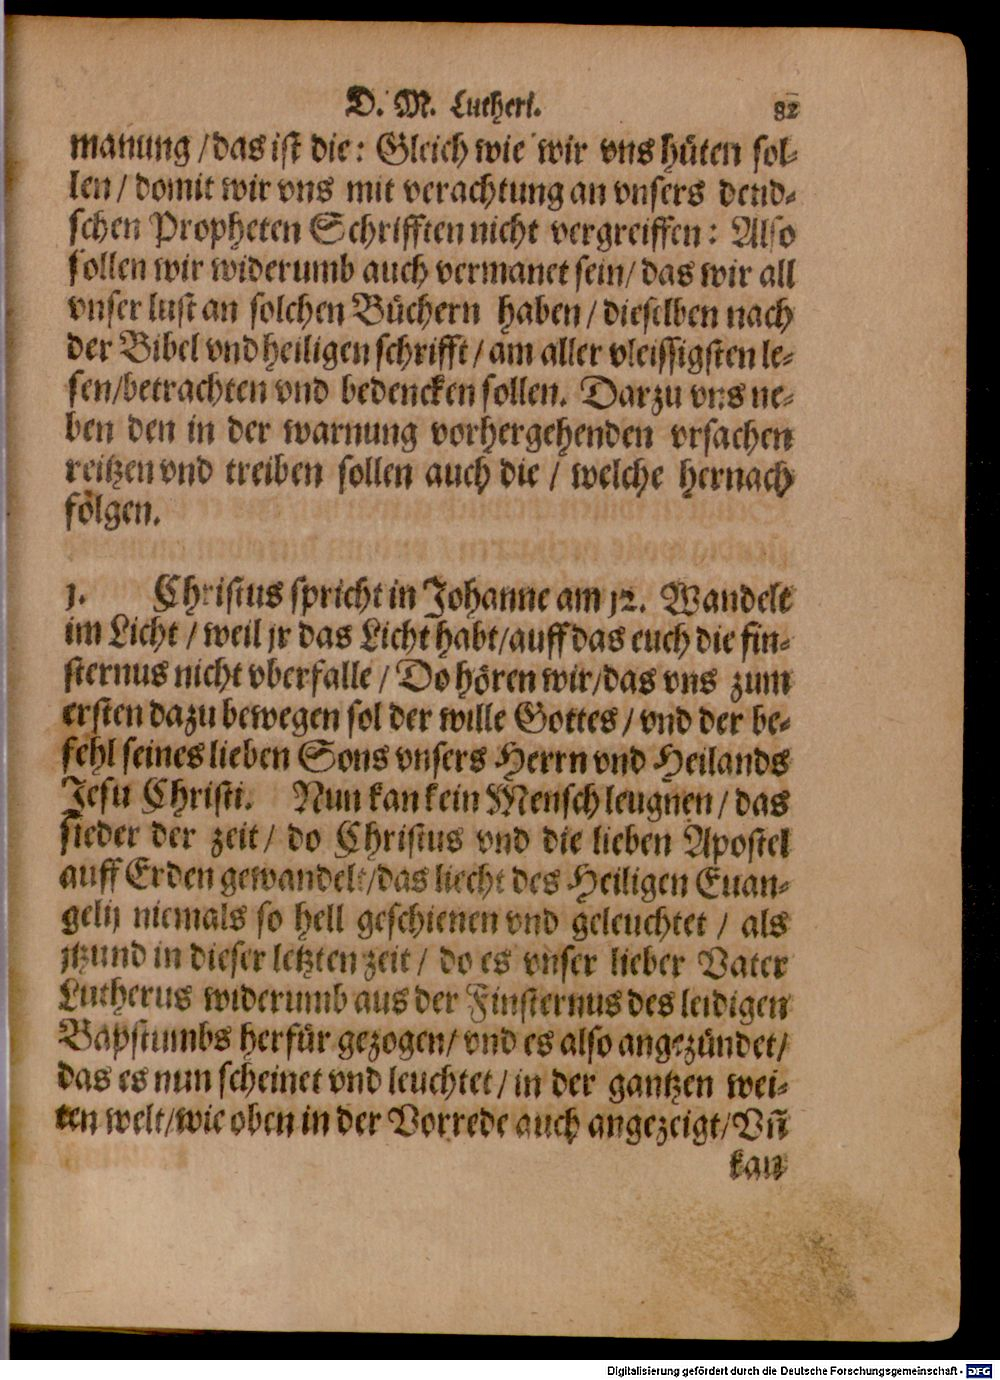 D. M. Lutheri. 82
manung / das ist die: Gleich wie wir vns hüten sol-
len / domit wir vns mit verachtung an vnsers deud-
schen Propheten Schrifften nicht vergreiffen: Also
sollen wir widerumb auch vermanet sein / das wir all
vnser lust an solchen Büchern haben / dieselben nach
der Bibel vnd heiligen schrifft / am aller vleissigsten le-
sen / betrachten vnd bedencken sollen. Darzu vns ne-
ben den in der warnung vorhergehenden vrsachen
reitzen vnd treiben sollen auch die / welche hernach
folgen.
1. Christus spricht in Johanne am 12. Wandelt
im Licht / weil jr das Licht habt / auff das euch die fin-
sternus nicht vberfalle / Do hören wir / das vns zum
ersten dazu bewegen sol der wille Gottes / vnd der be-
fehl seines lieben Sons vnsers Herrn vnd Heilands
Jesu Christi. Nun kan kein Mensch leugnen / das
sieder der zeit / do Christus vnd die lieben Apostel
auff Erden gewandelt / das liecht des Heiligen Euan-
gelij niemals so hell geschienen vnd geleuchtet / als
jtzund in dieser letzten zeit / do es vnser lieber Vater
Lutherus widerumb aus der Finsternus des leidigen
Bapstumbs herfür gezogen / vnd es also angezündet /
das es nun scheinet vnd leuchtet / in der gantzen wei-
ten welt / wie oben in der Vorrede auch angezeigt / Vñ
kan
Digitalisierung gefördert durch die Deutsche Forschungsgemeinschaft - DFG